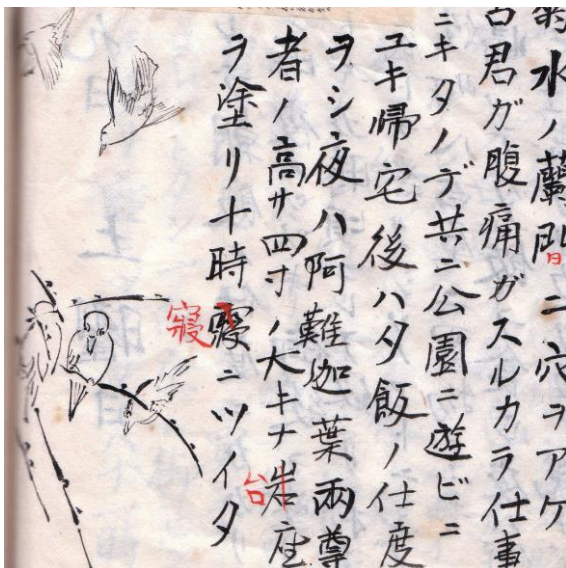 水ノ蘭間ニ穴ヲアケ
君ガ腹痛ガスルカラ仕事
ニキタノデ共ニ公園ニ遊ビニ
ユキ帰宅後ハ夕飯ノ仕度
ヲシ夜ハ阿難迦葉両尊
者ノ高サ四寸ノ大キナ岩座
台
ヲ塗リ十時寢ニツイタ
寢